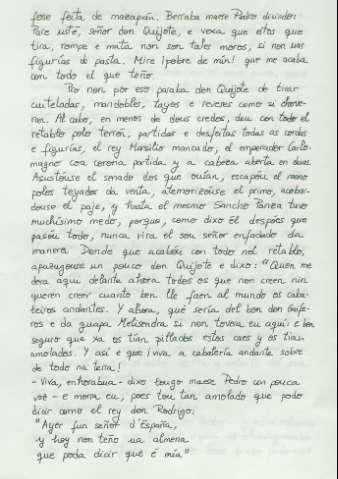 fose feita de mazapán. Berraba maese Pedro dicindo:
Pare usté, señor don Quijote, e vexa que estos que
tira, rompe e mata non son tales moros, si non uas
figurías de pasta. Mire ¡pobre de min! que me acaba
con todo el que teño.
Pro non por eso paraba don Quijote de tirar
cuiteladas, mandobles, tayos e reveses como si chove-
ran. Al cabo, en menos de dous credos, deu con todo el
retablo polo terrén, partidas e desfeitas todas as cordas
e figurías, el rey Marsilio mancado, el emperador Carlo-
magno coa corona partida y a cabeza aberta en dous.
Asustóuse el senado dos que ouían, escapóu el mono
polos teyados da venta, atemorizóuse el primo, acobar-
douse el paje, y hasta el mesmo Sancho Panza tuvo
muchísimo medo, porque, como dixo él despóis que
pasóu todo, nunca vira el sou señor enfadado da
manera. Dende que acabóu con todo nel retablo,
apazugóuse un pouco don Quijote e dixo: "Quen me
dera aquí delante ahora todos os que non creen nin
queren creer cuanto ben lle faen al mundo os caba-
leiros andantes. Y ahora, qué sería del bon don Gaife-
ros e da guapa Melisendra si non tovera eu aquí: e bon
seguro que xa os tían pillados estos caes y os tían
amolados. Y así e que ¡viva a cabalería andante sobre
de todo na terra!
- Viva, enhorabua - dixo lougo maese Pedro con pouca
voz - e morra eu, pois tou tan amolado que podo
dicir como el rey don Rodrigo:
"Ayer fun señor d'España,
y hoy non teño ua almena
que poda dicir que é mía"